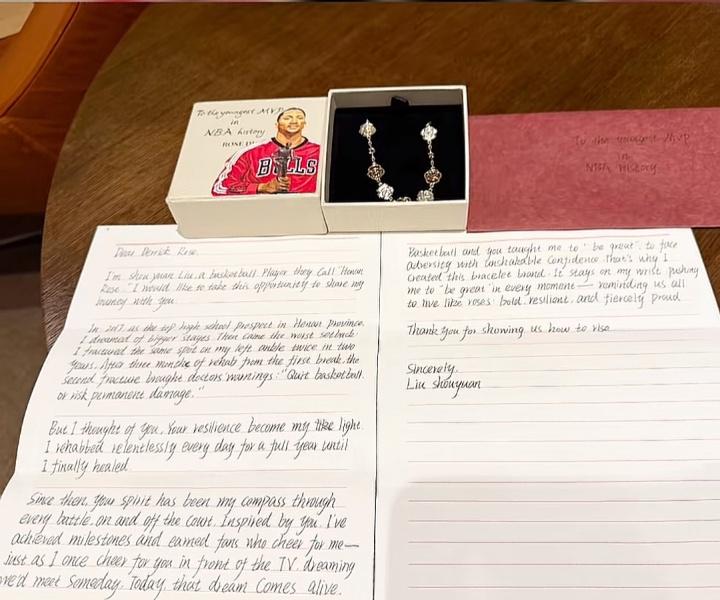 To the youngest MVP
in
NBA history
ROSE
BULLS
To the youngest MVP
in
NBA History
Dear Derrick Rose,
I'm shou yuan Liu, a basketball Player they Call "Henan
Rose." I would like to take this opportunity to share my
Journey with you
In 2017, as the top high school prospect in Henan province,
I dreamed of bigger stages Then came the worst setback:
I fractured the same spot on my left ankle twice in two
years. After three months of rehab from the first break, the
second fracture brought doctors' warnings: "Quit basketball,
or risk permanent damage."
But I thought of you. Your resilience become my light.
I rehabbed relentlessly every day for a full year until
I finally healed
Since then, your spirit has been my compass through
every battle, on and off the court. Inspired by you, I've
achieved milestones and earned fans who cheer for me—
just as I once cheer for you in front of the TV, dreaming
we'd meet Someday. Today, that dream Comes alive.
Basketball and you taught me to "be great": to face
adversity with unshakable Confidence. That's why I
created this bracelet brand. It stays on my wrist, pushing
me to "be great" in every moment — reminding us all
to live like roses: bold, resilient, and fiercely proud
Thank you for showing us how to rise
Sincerely,
Liu shouyuan